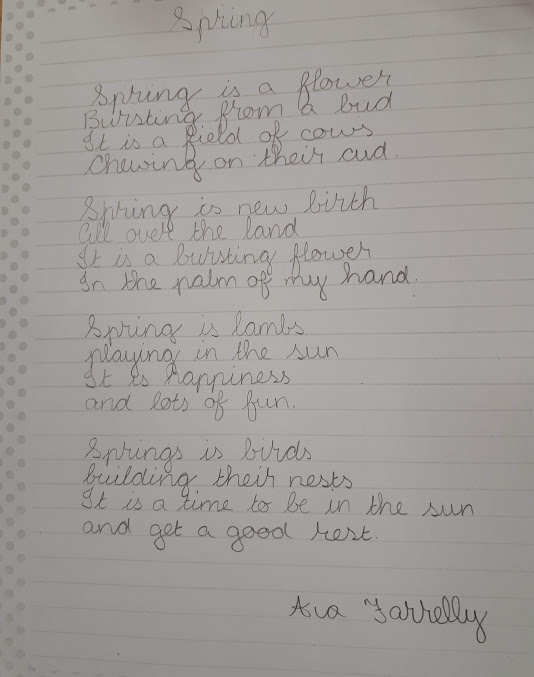 Spring
Spring is a flower
Bursting from a bud
It is a field of cows
Chewing on their cud.
Spring is new birth
All over the land
It is a bursting flower
In the palm of my hand.
Spring is lambs
playing in the sun
It is happiness
and lots of fun.
Springs is birds
building their nests
It is a time to be in the sun
and get a good rest.
Ava Farrelly